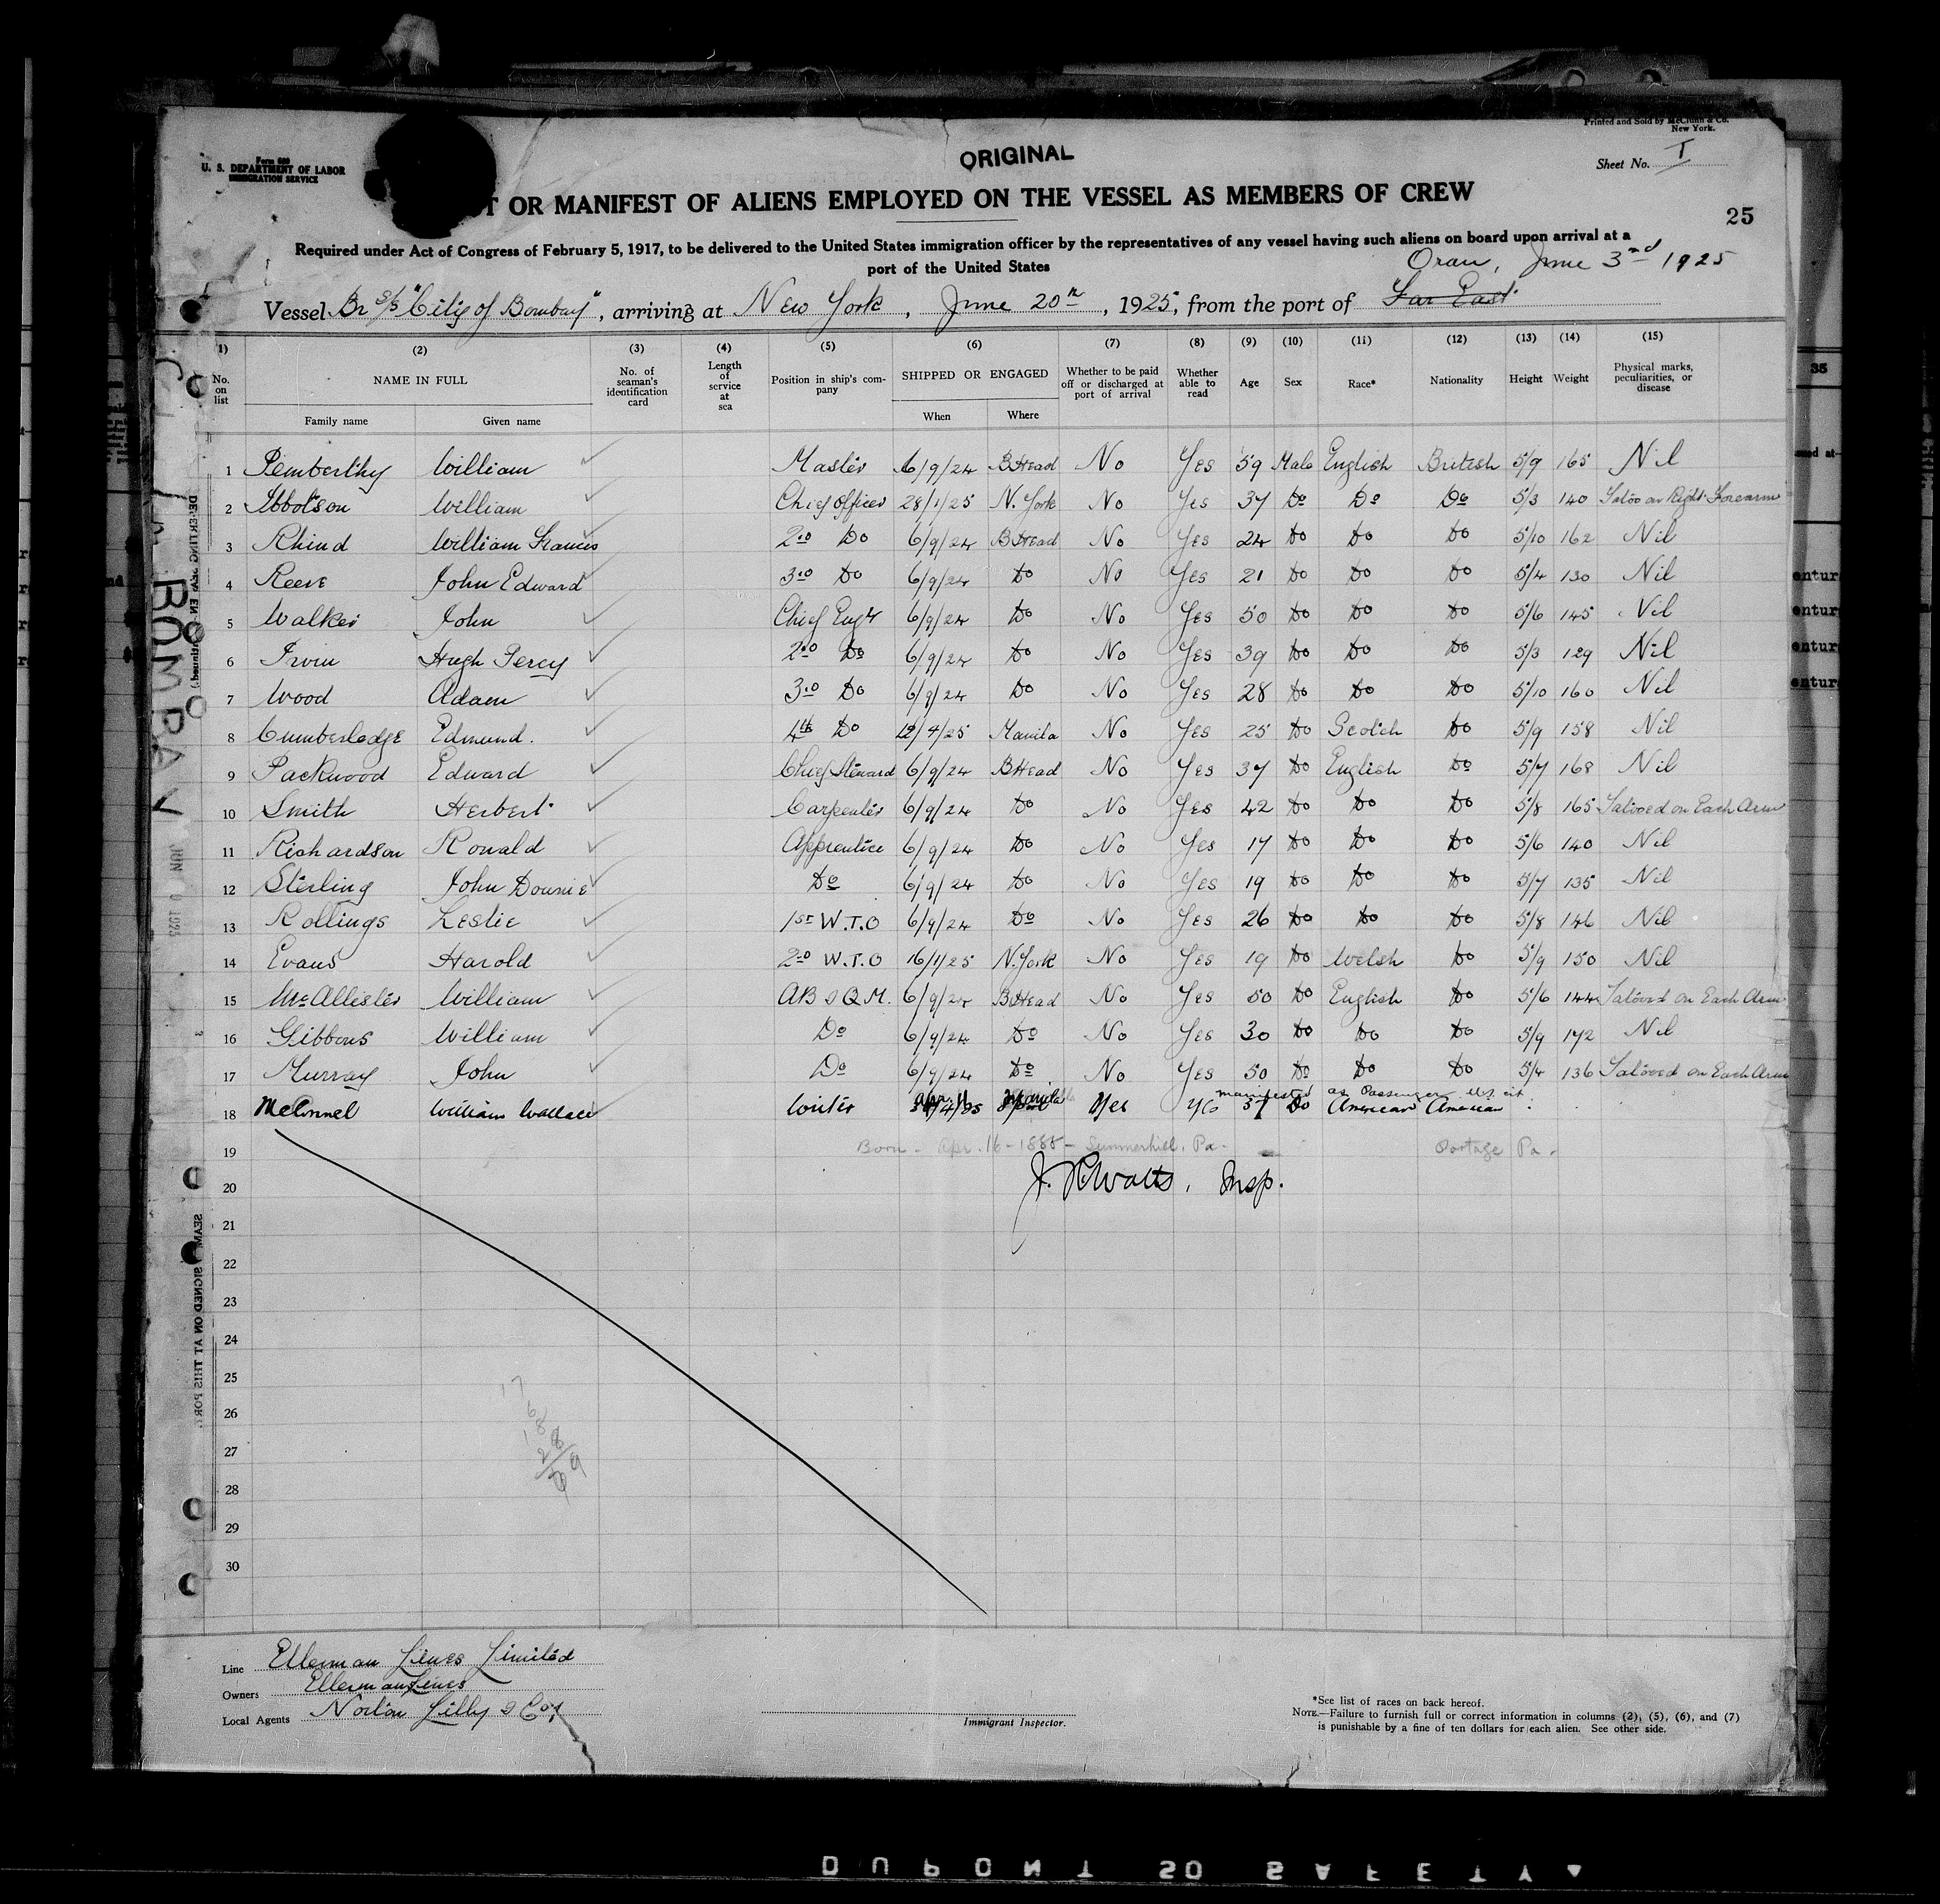 Printed and Sold by McClunn & Co.
New York.
Form 689
U. S. DEPARTMENT OF LABOR
IMMIGRATION SERVICE
ORIGINAL
Sheet No. I
T OR MANIFEST OF ALIENS EMPLOYED ON THE VESSEL AS MEMBERS OF CREW
25
Required under Act of Congress of February 5, 1917, to be delivered to the United States immigration officer by the representatives of any vessel having such aliens on board upon arrival at a
port of the United States
Oran, June 3rd 1925
Vessel Br S/S "City of Bombay", arriving at New York, June 20th, 1925, from the port of Far East
(1) (2) (3) (4) (5) (6) (7) (8) (9) (10) (11) (12) (13) (14) (15)
No. on list NAME IN FULL Family name Given name No. of seaman's identification card Length of service at sea Position in ship's company SHIPPED OR ENGAGED When Where Whether to be paid off or discharged at port of arrival Whether able to read Age Sex Race* Nationality Height Weight Physical marks, peculiarities, or disease
1 Pemberthy William Master 6/9/24 B Head No Yes 59 Male English British 5/9 165 Nil
2 Ibbotson William Chief Officer 28/1/25 N. York No Yes 37 Do Do Do 5/3 140 Tatoo on Right Forearm
3 Rhind William Francis 2nd Do 6/9/24 B Head No Yes 24 Do Do Do 5/10 162 Nil
4 Reeve John Edward 3rd Do 6/9/24 Do No Yes 21 Do Do Do 5/4 130 Nil
5 Walker John Chief Engr 6/9/24 Do No Yes 50 Do Do Do 5/6 145 Nil
6 Irwin Hugh Percy 2nd Do 6/9/24 Do No Yes 39 Do Do Do 5/3 129 Nil
7 Wood Adam 3rd Do 6/9/24 Do No Yes 28 Do Do Do 5/10 160 Nil
8 Cumberledge Edmund. 4th Do 12/4/25 Manila No Yes 25 Do Scotch Do 5/9 158 Nil
9 Packwood Edward Chief Steward 6/9/24 B Head No Yes 37 Do English Do 5/7 168 Nil
10 Smith Herbert Carpenter 6/9/24 Do No Yes 42 Do Do Do 5/8 165 Tatooed on Each Arm
11 Richardson Ronald Apprentice 6/9/24 Do No Yes 17 Do Do Do 5/6 140 Nil
12 Sterling John Downie Do 6/9/24 Do No Yes 19 Do Do Do 5/7 135 Nil
13 Rollings Leslie 1st W.T.O 6/9/24 Do No Yes 26 Do Do Do 5/8 146 Nil
14 Evans Harold 2nd W.T.O 16/1/25 N. York No Yes 19 Do Welsh Do 5/9 150 Nil
15 McAllister William AB & Q.M. 6/9/24 B Head No Yes 50 Do English Do 5/6 144 Tatooed on Each Arm
16 Gibbons William Do 6/9/24 Do No Yes 30 Do Do Do 5/9 172 Nil
17 Murray John Do 6/9/24 Do No Yes 50 Do Do Do 5/4 136 Tatooed on Each Arm
manifested as Passenger U.S. cit
18 McConnel William Wallace Writer Manila Yes Yes 37 Do American American
19 Born - Apr. 16 - 1888 - Summerhill, Pa - Portage Pa -
20 J. R. Watts, Insp.
21
22
23
24
25
26
27
28
29
30
17
6
18
28
Line Ellerman Lines Limited
Owners Ellerman Lines
Local Agents Norton Lilly & Coy
Immigrant Inspector.
*See list of races on back hereof.
NOTE.—Failure to furnish full or correct information in columns (2), (5), (6), and (7)
is punishable by a fine of ten dollars for each alien. See other side.
BOMBAY
35
DUPONT SAFETY